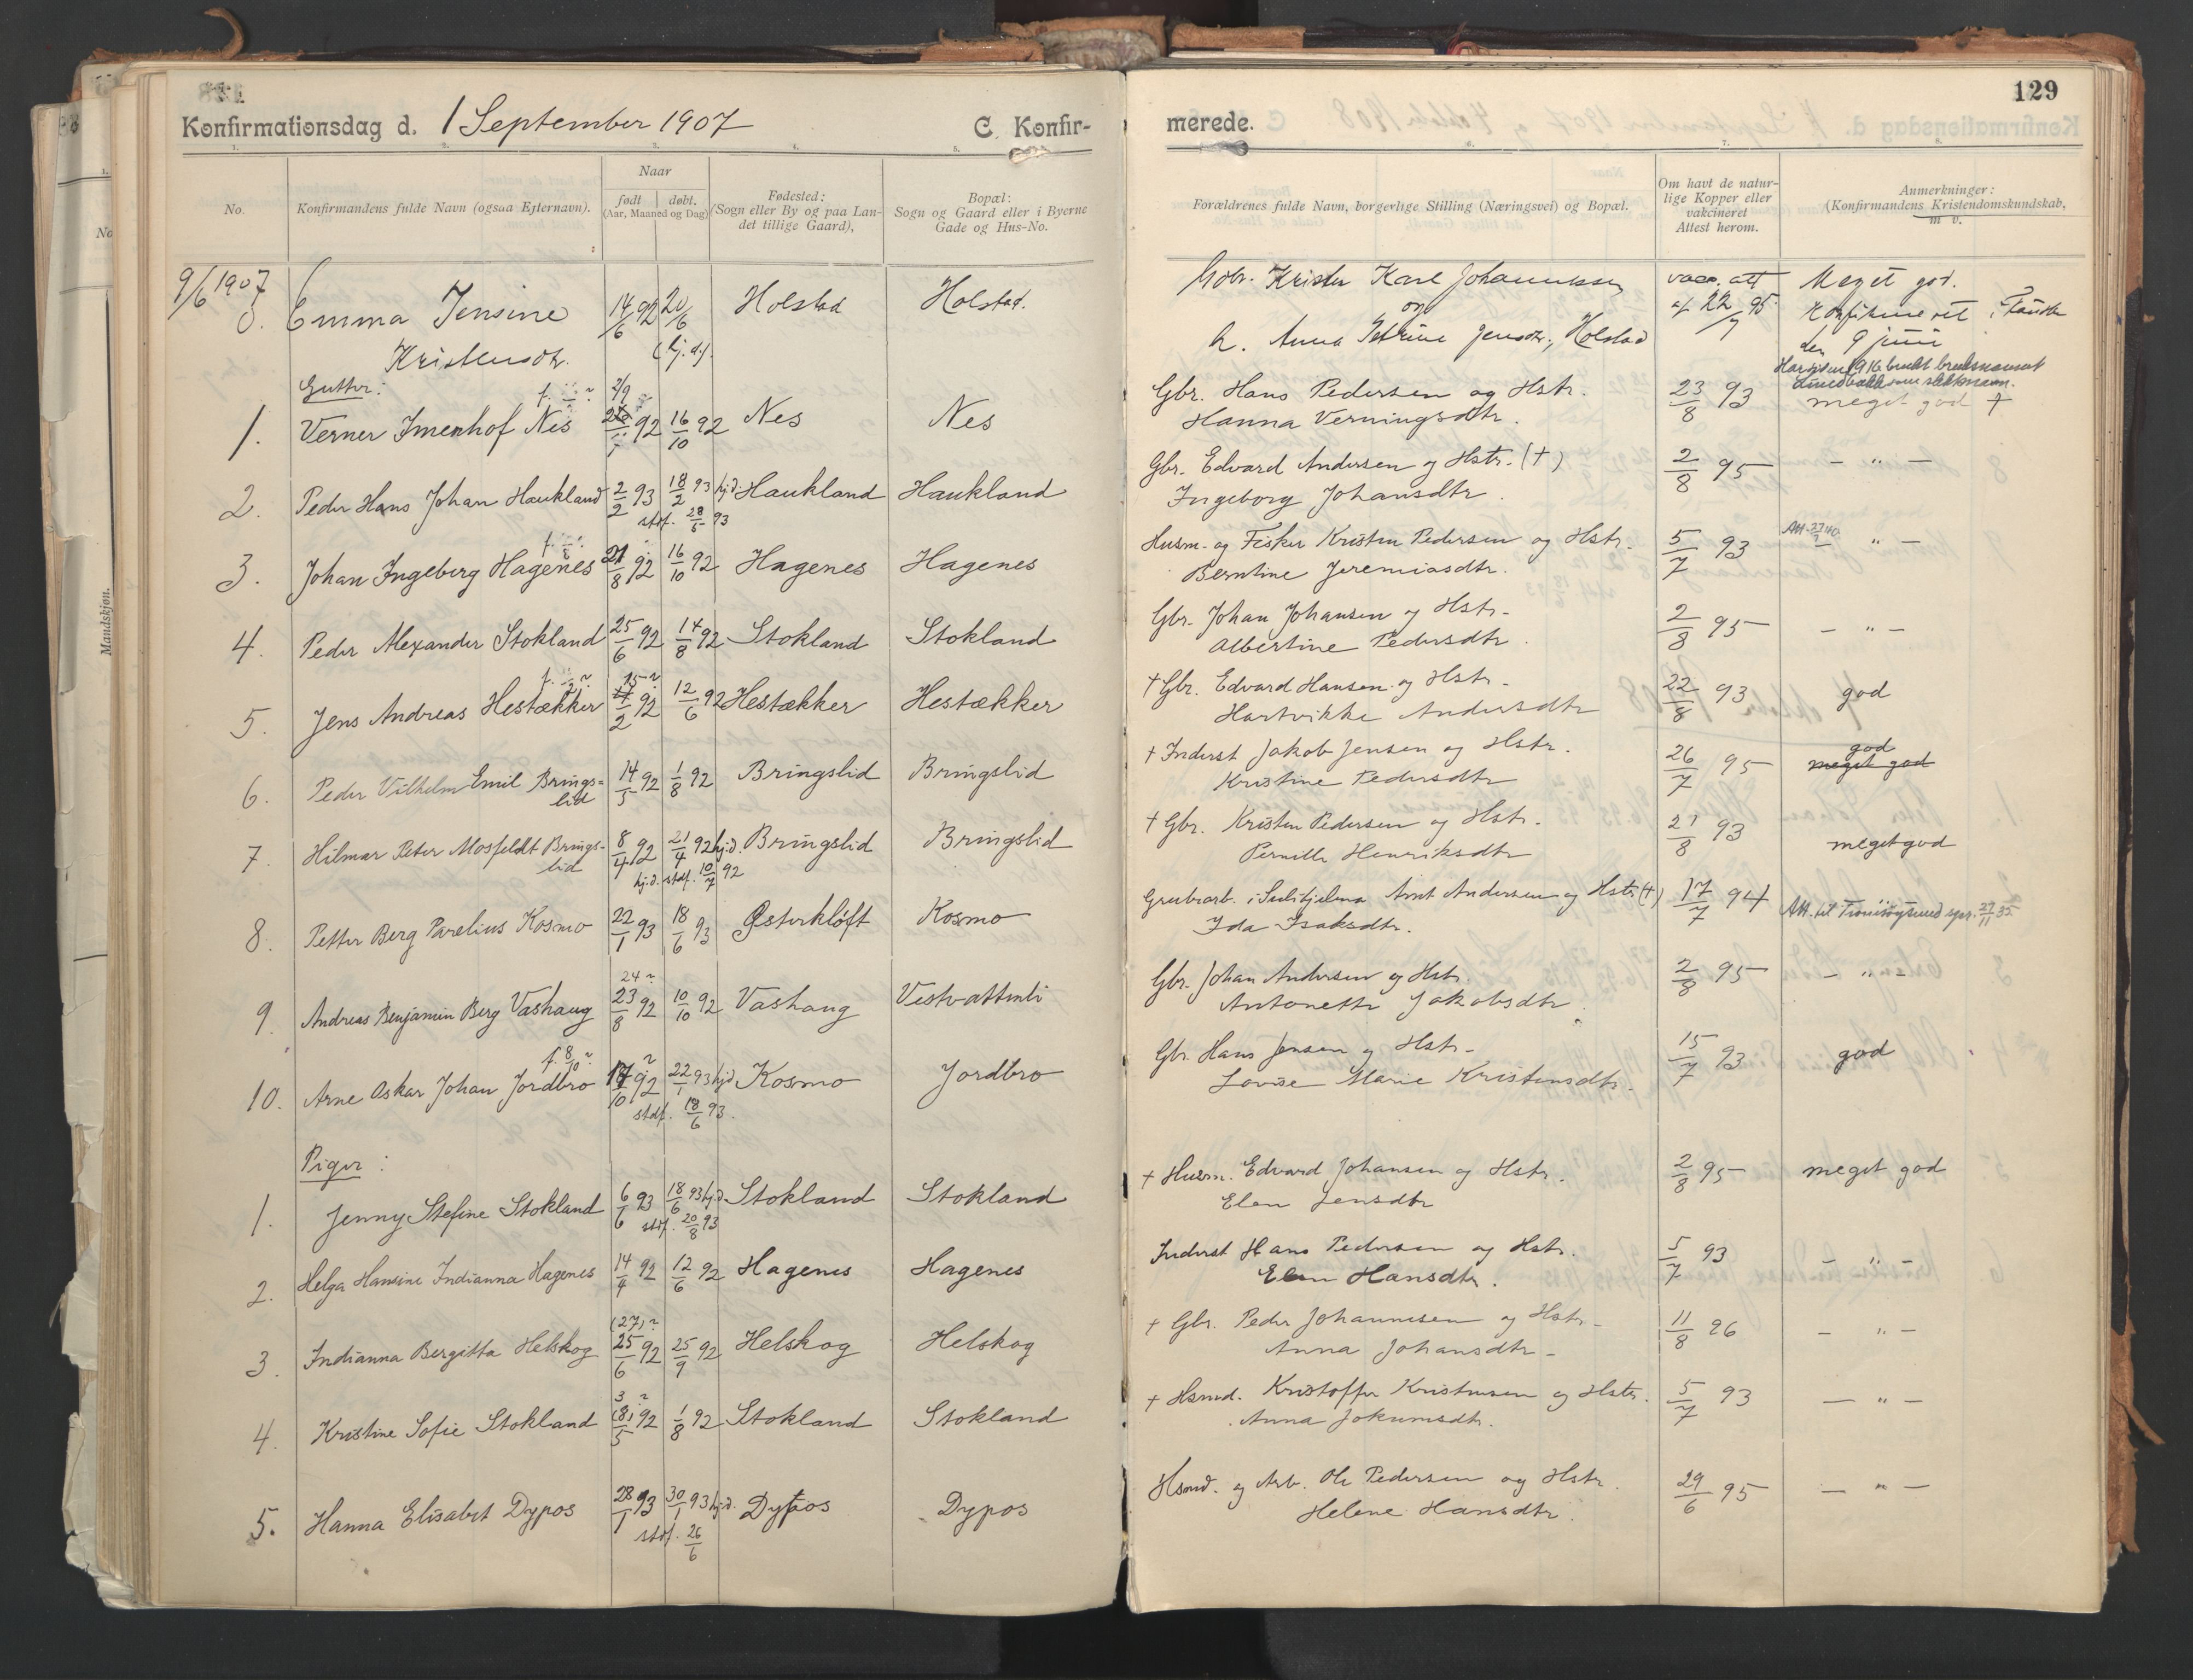 Konfirmationsdag d. 1 September 1907 C. Konfir-
No.
Konfirmandens fulde Navn (ogsaa Efternavn).
Naar
født døbt.
(Aar, Maaned og Dag)
Fødested:
(Sogn eller By og paa Lan-
det tillige Gaard),
Bopæl:
Sogn og Gaard eller i Byerne
Gade og Hus-No.
9/6 1907
0. Emma Jensine 14/6 92 20/6 Holstad Holstad.
Kristensdtr. (hj.d.)
Gutter:
1. Verner Imenhof Nes 2/9 92 16/10 92 Nes Nes
2. Peder Hans Johan Haukland 2/2 93 18/2 93 hj.d Haukland Haukland
stdf. 28/6 93
3. Johan Ingeberg Hagenes 21/8 92 16/10 92 Hagenes Hagenes
4. Peder Alexander Stokland 25/6 92 14/8 92 Stokland Stokland
5. Jens Andreas Hestækker 15 ~ 2 92 12/6 92 Hestækker Hestækker
6. Peder Vilhelm Emil Brings= 14/5 92 1/8 92 Bringslid Bringslid
lid
7. Hilmar Peter Mosfeldt Brings- 8/4 92 21/4 92 hj.d. Bringslid Bringslid
lid hj.d. stdf. 10/7 92
8. Petter Berg Parelius Kosmo 22/1 93 18/6 93 Østerkløft Kosmo
24 ~
9. Andreas Benjamin Berg Vashaug 23/8 92 10/10 92 Vashaug Vestvattenli
f. 8/10 ~
10. Arne Oskar Johan Jordbro 17/10 92 22/1 93 hjd Kosmo Jordbro
stdf. 18/6 93.
Piger:
1. Jenny Stefine Stokland 6/6 93 18/6 93 hj.d Stokland Stokland
stdf. 20/8 93
2. Helga Hansine Indianna Hagenes 14/4 92 12/6 92 Hagenes Hagenes
(27) ~
3. Indianna Bergitta Helskog 25/6 92 25/9 92 Helskog Helskog
3 ~
4. Kristine Sofie Stokland (8)/5 92 1/8 92 Stokland Stokland
5. Hanna Elisabet Dypos 28/1 93 30/1 93 hj.d. Dypos Dypos
stdf. 26/6
Mandskjøn.
129
merede.
Forældrenes fulde Navn, borgerlige Stilling (Næringsvei) og Bopæl.
Om havt de natur-
lige Kopper eller
vakcineret
Attest herom.
Anmerkninger:
(Konfirmandens Kristendomskundskab,
m v.
Gdbr. Kristen Karl Johannessen vacc. att Meget god.
og af 22/7 95 Konfirmeret i Fauske
h. Anna Petrine Jensdtr., Holstad den 9 juni
Har siden 1916 brukt bruksnavnet
som slektsnavn.
Gbr. Hans Pedersen og Hstr. 23/8 93 meget god +
Hanna Verningsdtr.
Gbr. Edvard Andersen og Hstr. (+) 2/8 95 - " -
Ingeborg Johansdtr.
Husm. og Fisker Kristen Pedersen og Hstr. 5/7 93 - " -
Berntine Jeremiasdtr.
Gbr. Johan Johansen og Hstr. 2/8 95 - " -
Albertine Pedersdtr.
+ Gbr. Edvard Hansen og Hstr. 22/8 93 god
Hartvikke Andersdtr
god
+ Inderst Jakob Jensen og Hstr. 26/7 95 meget god
Kristine Pedersdtr
+ Gbr. Kristen Pedersen og Hstr. 21/8 93 meget god
Pernille Henriksdtr
Grubearb. i Sulitjelma Arnt Andersen og Hstr (+) 17/7 94 Att. til
Ida Isaksdtr.
Gbr. Johan Andersen og Hstr. 2/8 95 - " -
Antonette Jakobsdtr.
Gbr. Hans Jensen og Hstr. 15/7 93 god
Lovise Marie Kristensdtr.
+ Husm. Edvard Johansen og Hstr. 2/8 95 meget god
Elen Jensdtr
Inderst Hans Pedersen og Hstr. 5/7 93 - " -
Elen Hansdtr.
+ Gbr. Peder Johannesen og Hstr. 11/8 96 - " -
Anna Johansdtr.
+ Hsmd. Kristoffer Kristensen og Hstr. 5/7 93 - " -
Anna Jokumsdtr.
Hsmd. og Arb. Ole Pedersen og Hstr. 29/6 95 - " -
Helene Hansdtr.